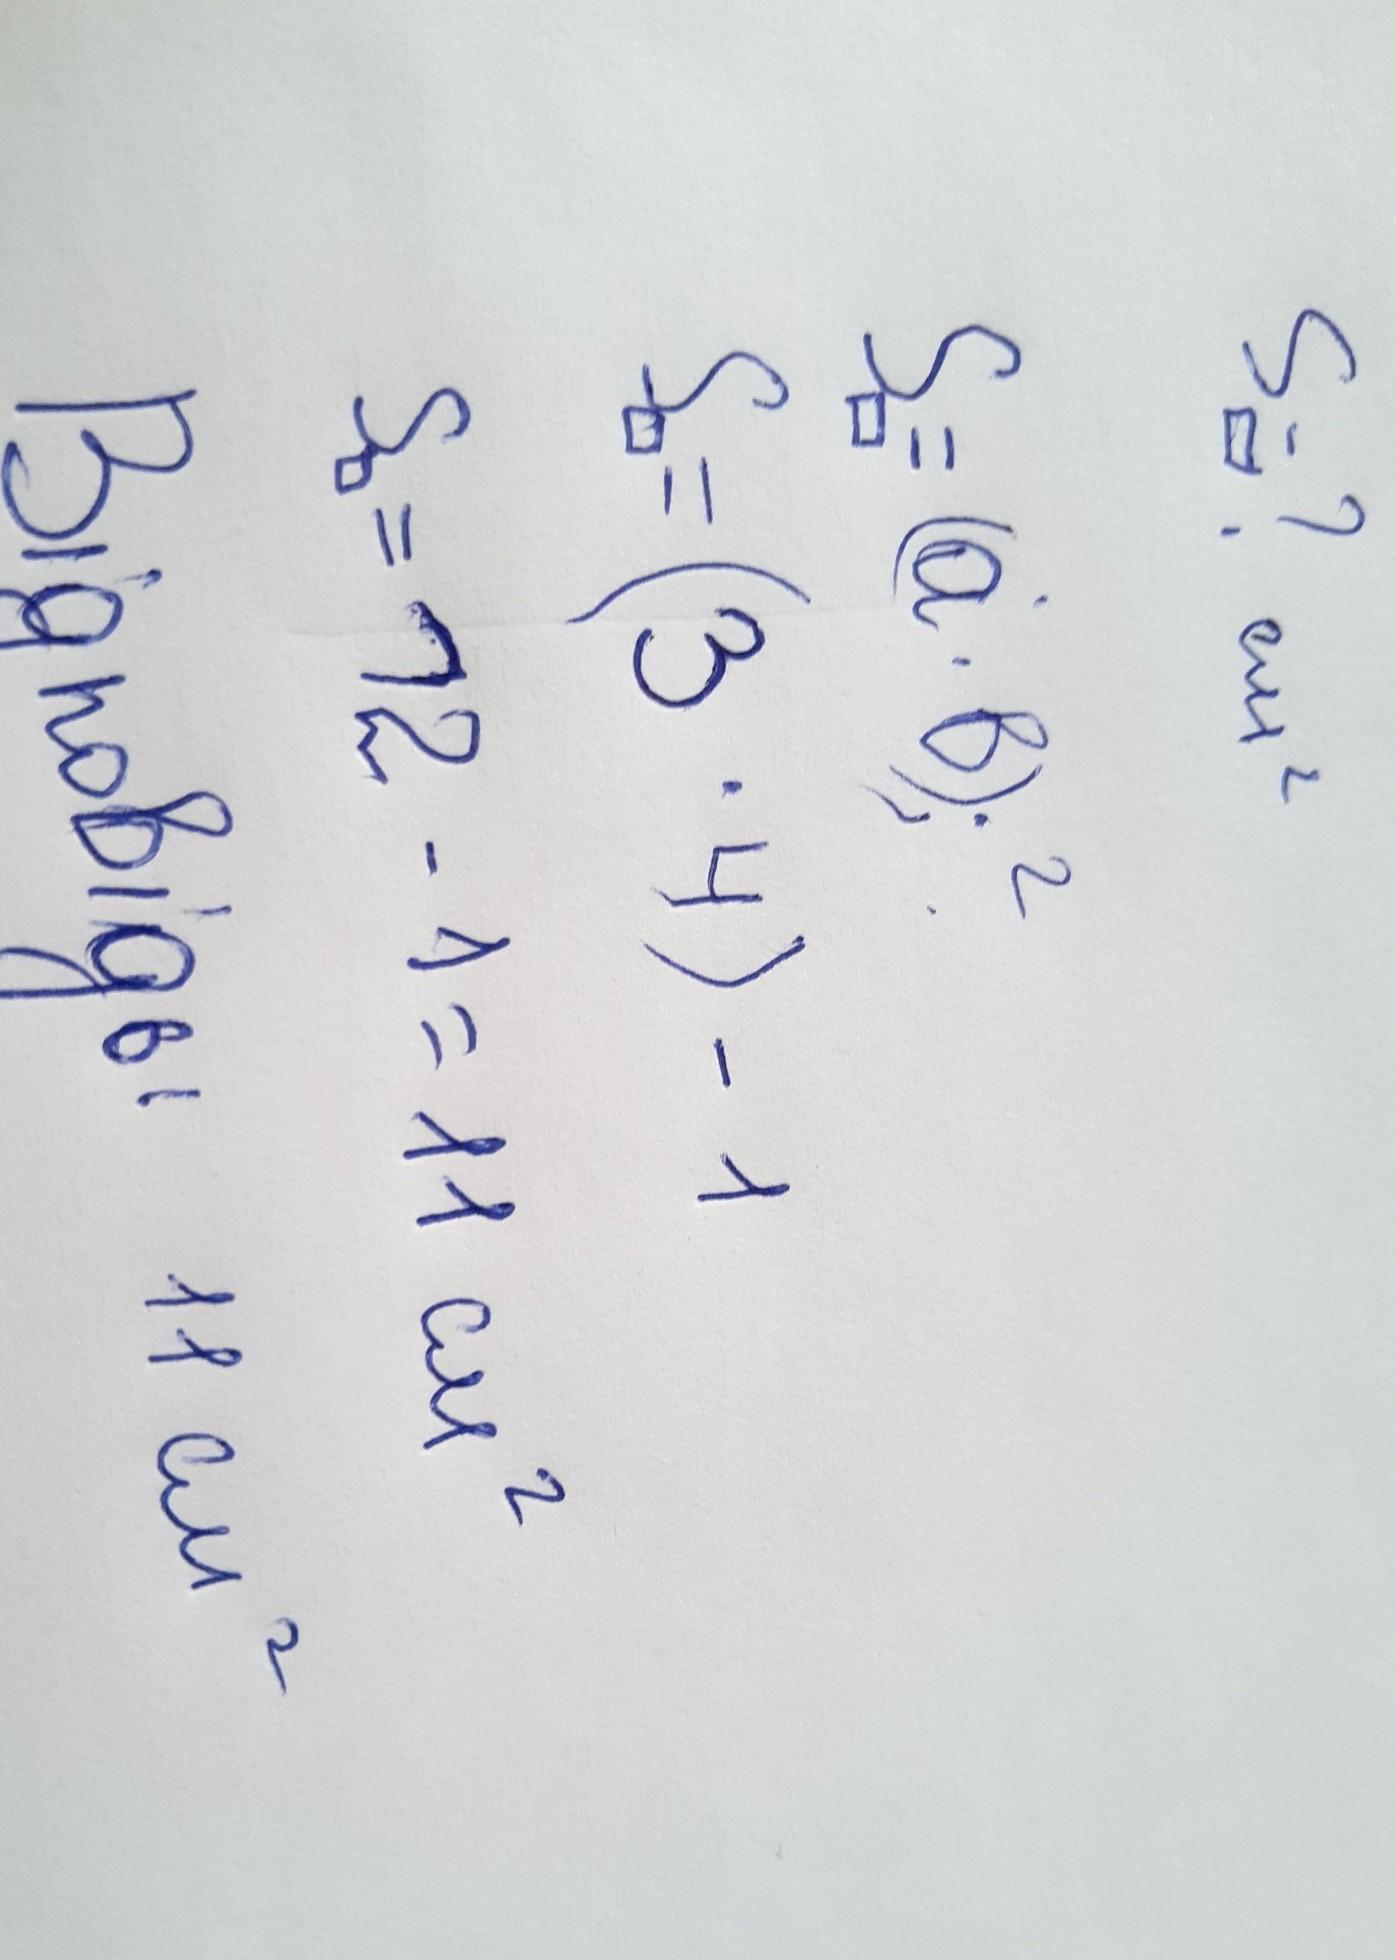 S□ - ? см²
S□ = (a · b) · 2
S□ = (3 · 4) - 1
S□ = 12 - 1 = 11 см²
Відповідь: 11 см²